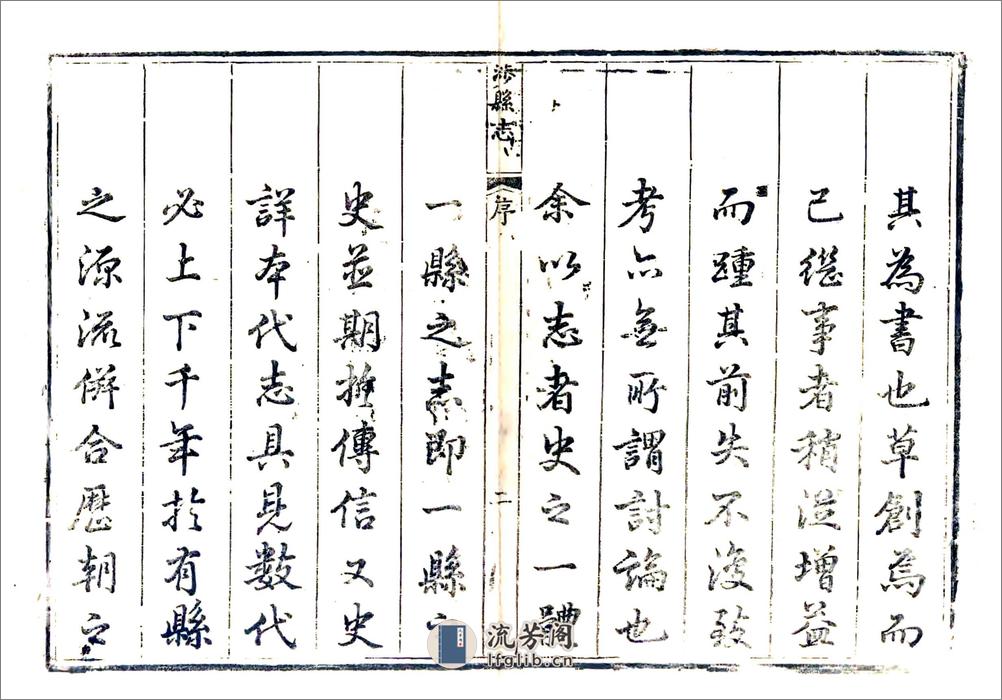 其為書也草創焉而
已繼事者稍從增益
而踵其前失不復致
考亦無所謂討論也
余以志者史之一體
涉縣志
序
二
一縣之志即一縣之
史並期於傳信又史
詳本代志具見數代
必上下千年於有縣
之源流併合歷朝之
流芳閣
lfglib.cn